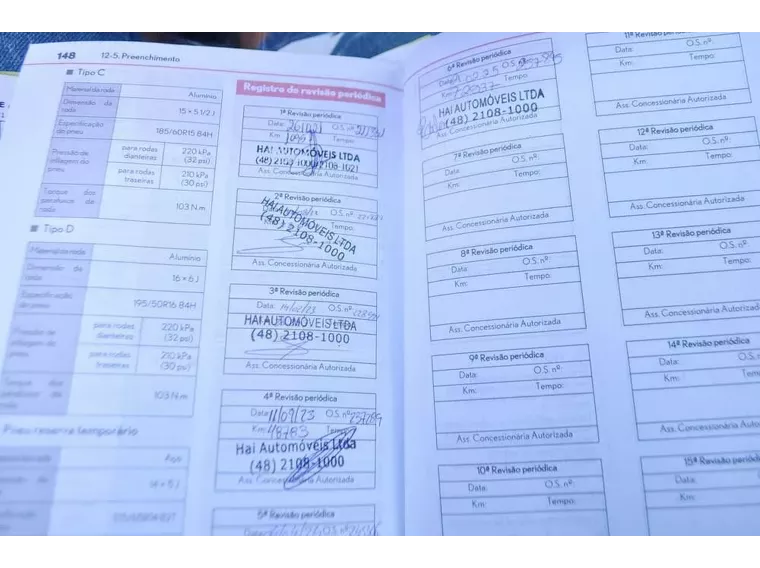 148 12-5. Preenchimento
■ Tipo C
Material da roda Alumínio
Dimensão da roda 15 x 5 1/2 J
Especificação do pneu 185/60R15 84H
Pressão de inflagem do pneu
para rodas dianteiras 220 kPa (32 psi)
para rodas traseiras 210 kPa (30 psi)
Torque dos parafusos da roda 103 N.m
■ Tipo D
Material da roda Alumínio
Dimensão da roda 16 x 6 J
Especificação do pneu 195/50R16 84H
Pressão de inflagem do pneu
para rodas dianteiras 220 kPa (32 psi)
para rodas traseiras 210 kPa (30 psi)
Torque dos parafusos da roda 103 N.m
Pneu reserva temporário
Aço
Registro da revisão periódica
1ª Revisão periódica
Data: O.S. nº
Km:
HAI AUTOMÓVEIS LTDA
Ass. Concessionária Autorizada
2ª Revisão periódica
O.S. nº
Tempo:
HAI AUTOMÓVEIS LTDA
(48) 2108-1000
Ass. Concessionária Autorizada
3ª Revisão periódica
Data: O.S. nº
HAI AUTOMÓVEIS LTDA
(48) 2108-1000
Ass. Concessionária Autorizada
4ª Revisão periódica
Data: 11/09/23 O.S. nº
Km: 48783 Tempo:
Hai Automóveis Ltda
(48) 2108-1000
Ass. Concessionária Autorizada
5ª Revisão periódica
6ª Revisão periódica
Data: O.S. nº
Km: Tempo:
HAI AUTOMÓVEIS LTDA
(48) 2108-1000
Ass. Concessionária Autorizada
7ª Revisão periódica
Data: O.S. nº
Km: Tempo:
Ass. Concessionária Autorizada
8ª Revisão periódica
Data: O.S. nº
Km: Tempo:
Ass. Concessionária Autorizada
9ª Revisão periódica
Data: O.S. nº
Km: Tempo:
Ass. Concessionária Autorizada
10ª Revisão periódica
Data: O.S. nº
Km: Tempo:
11ª Revisão periódica
Data: O.S. nº
Km: Tempo:
Ass. Concessionária Autorizada
12ª Revisão periódica
Data: O.S. nº
Km: Tempo:
Ass. Concessionária
13ª Revisão periódica
Data:
Km:
Ass. Concessionária
14ª Revisão periódica
Data:
Km:
Ass. Concessionária
15ª Revisão periódica
Data:
Km: